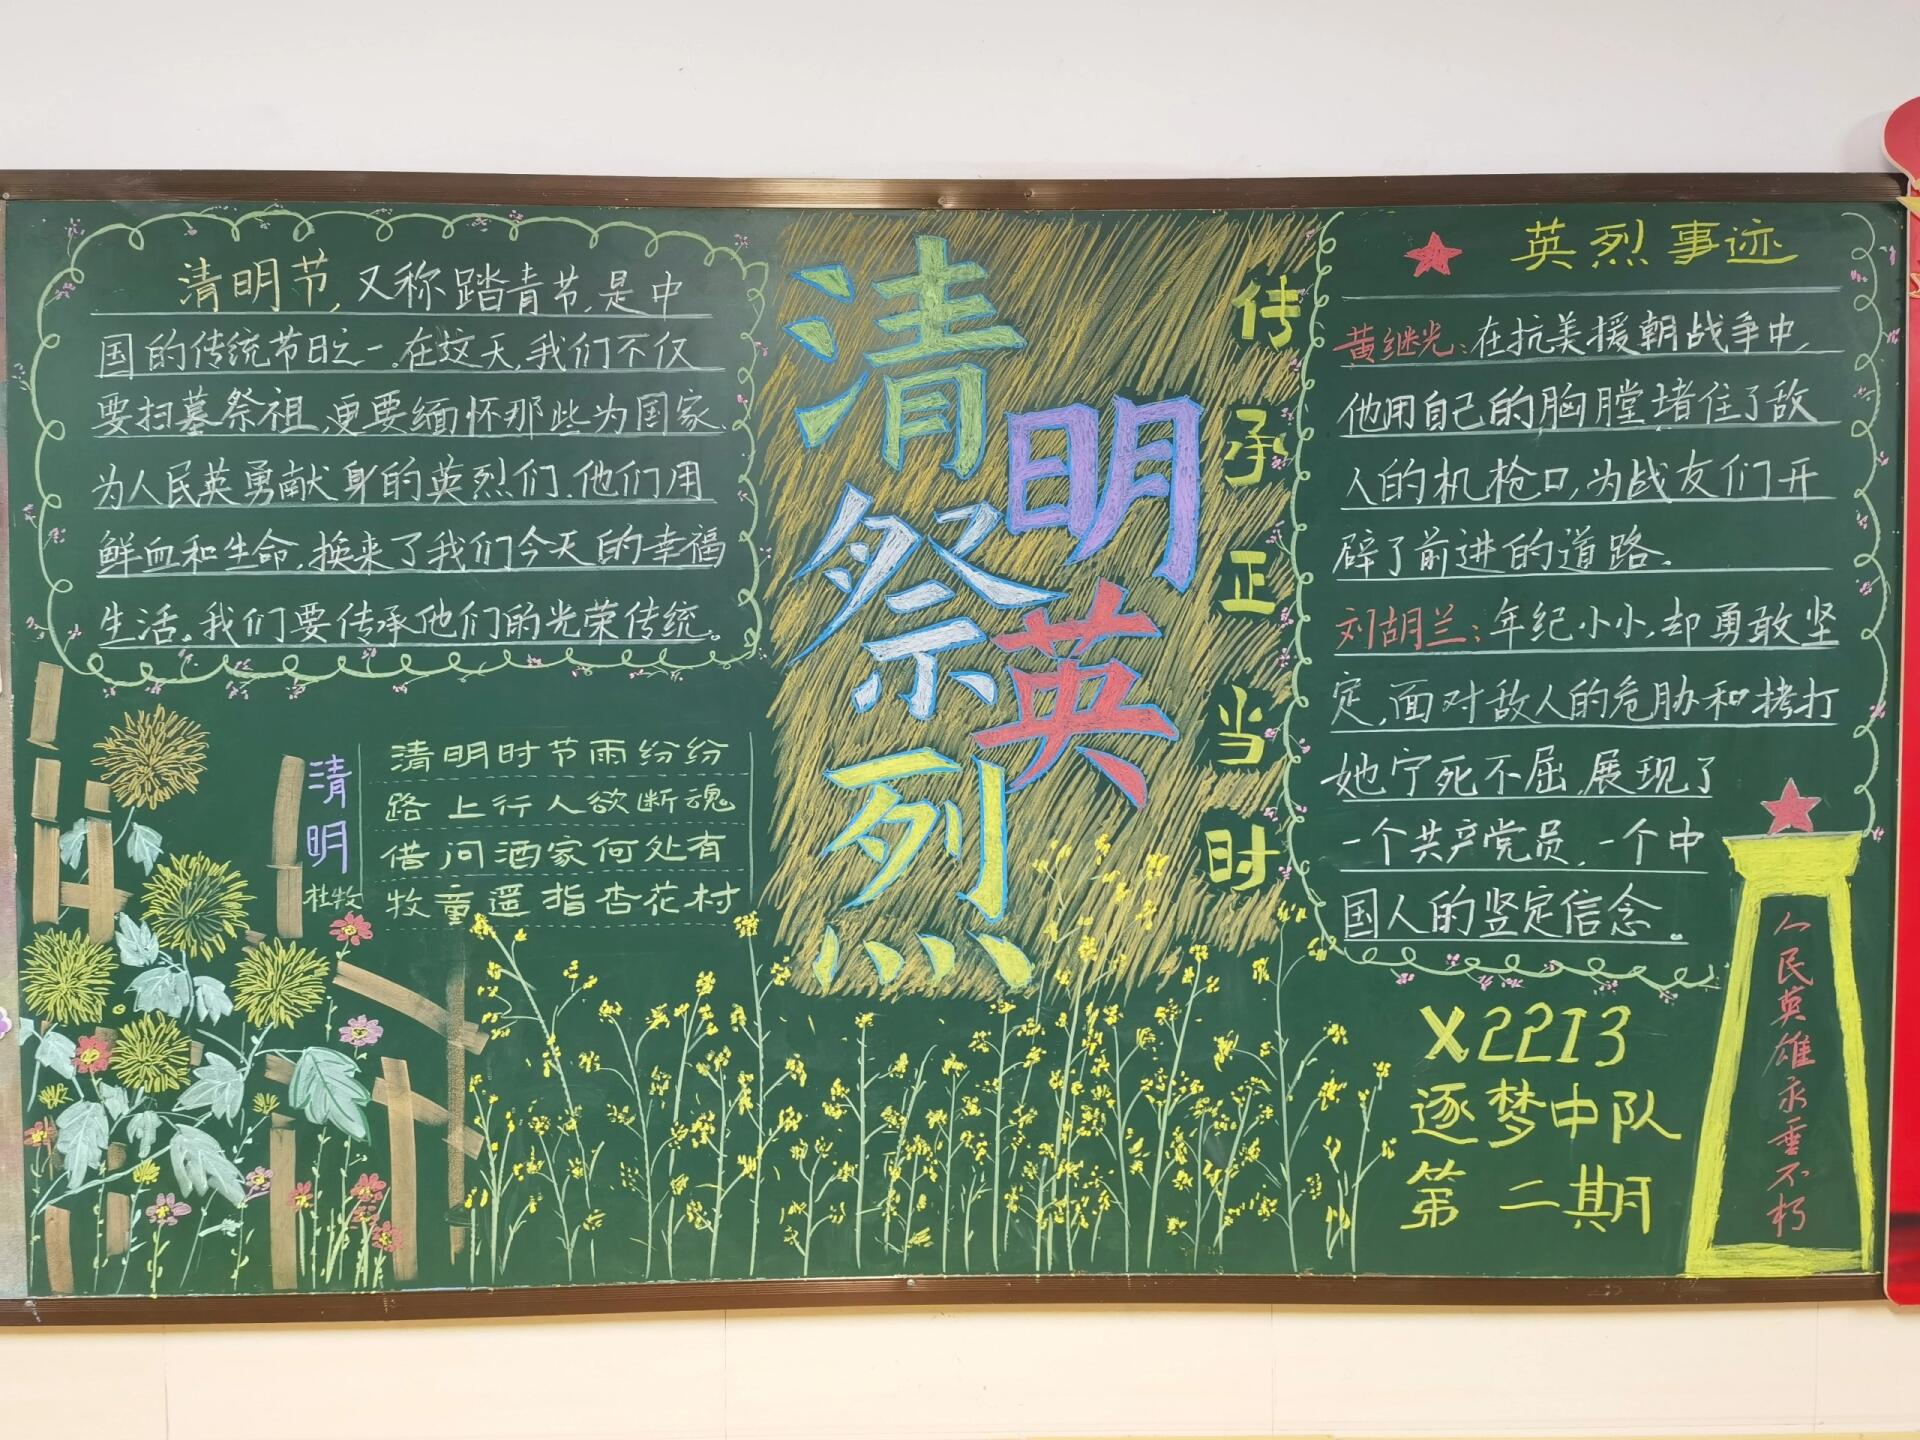 清明节,又称踏青节,是中
国的传统节日之一.在这天,我们不仅
要扫墓祭祖,更要缅怀那些为国家、
为人民英勇献身的英烈们.他们用
鲜血和生命,换来了我们今天的幸福
生活。我们要传承他们的光荣传统。
清明
杜牧
清明时节雨纷纷
路上行人欲断魂
借问酒家何处有
牧童遥指杏花村
清明
祭英烈
传承正当时
英烈事迹
黄继光:在抗美援朝战争中,
他用自己的胸膛堵住了敌
人的机枪口,为战友们开
辟了前进的道路.
刘胡兰:年纪小小,却勇敢坚
定,面对敌人的危胁和拷打
她宁死不屈,展现了
一个共产党员,一个中
国人的坚定信念。
X2213
逐梦中队
第二期
人民英雄永垂不朽